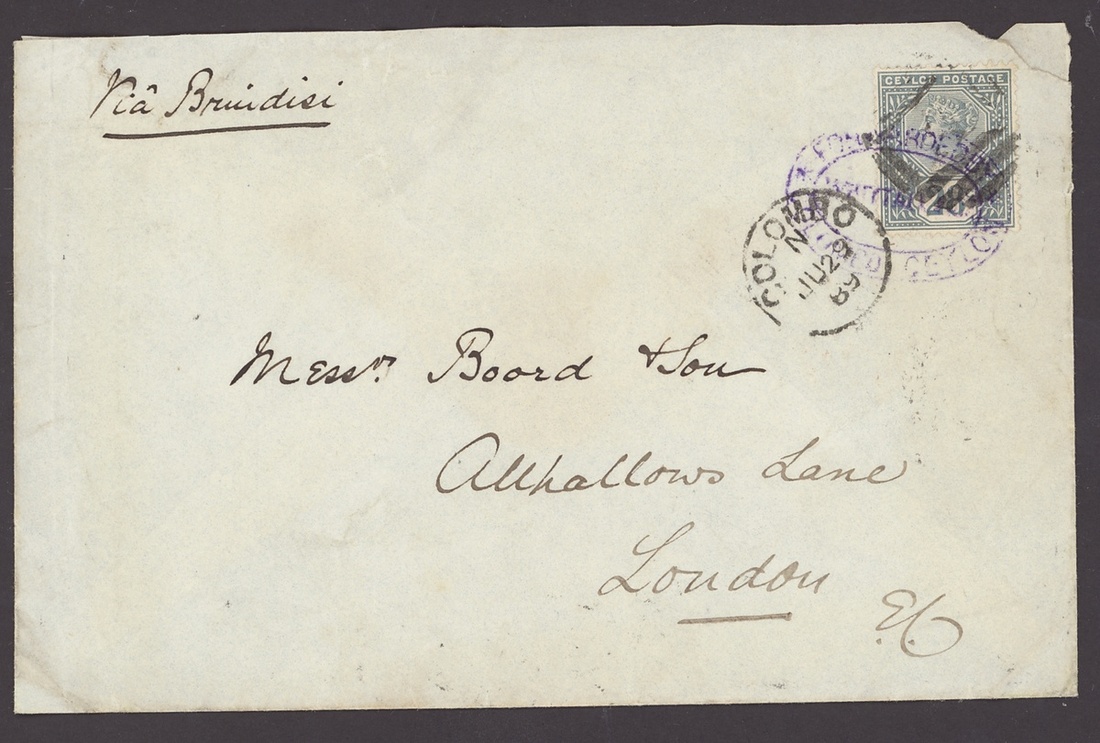 Viâ Brindisi
CEYLON POSTAGE
FORWARDED BY
CEYLON
COLOMBO
N
JU 29
89
Messrs Boord & Son
Allhallows Lane
London
E.C